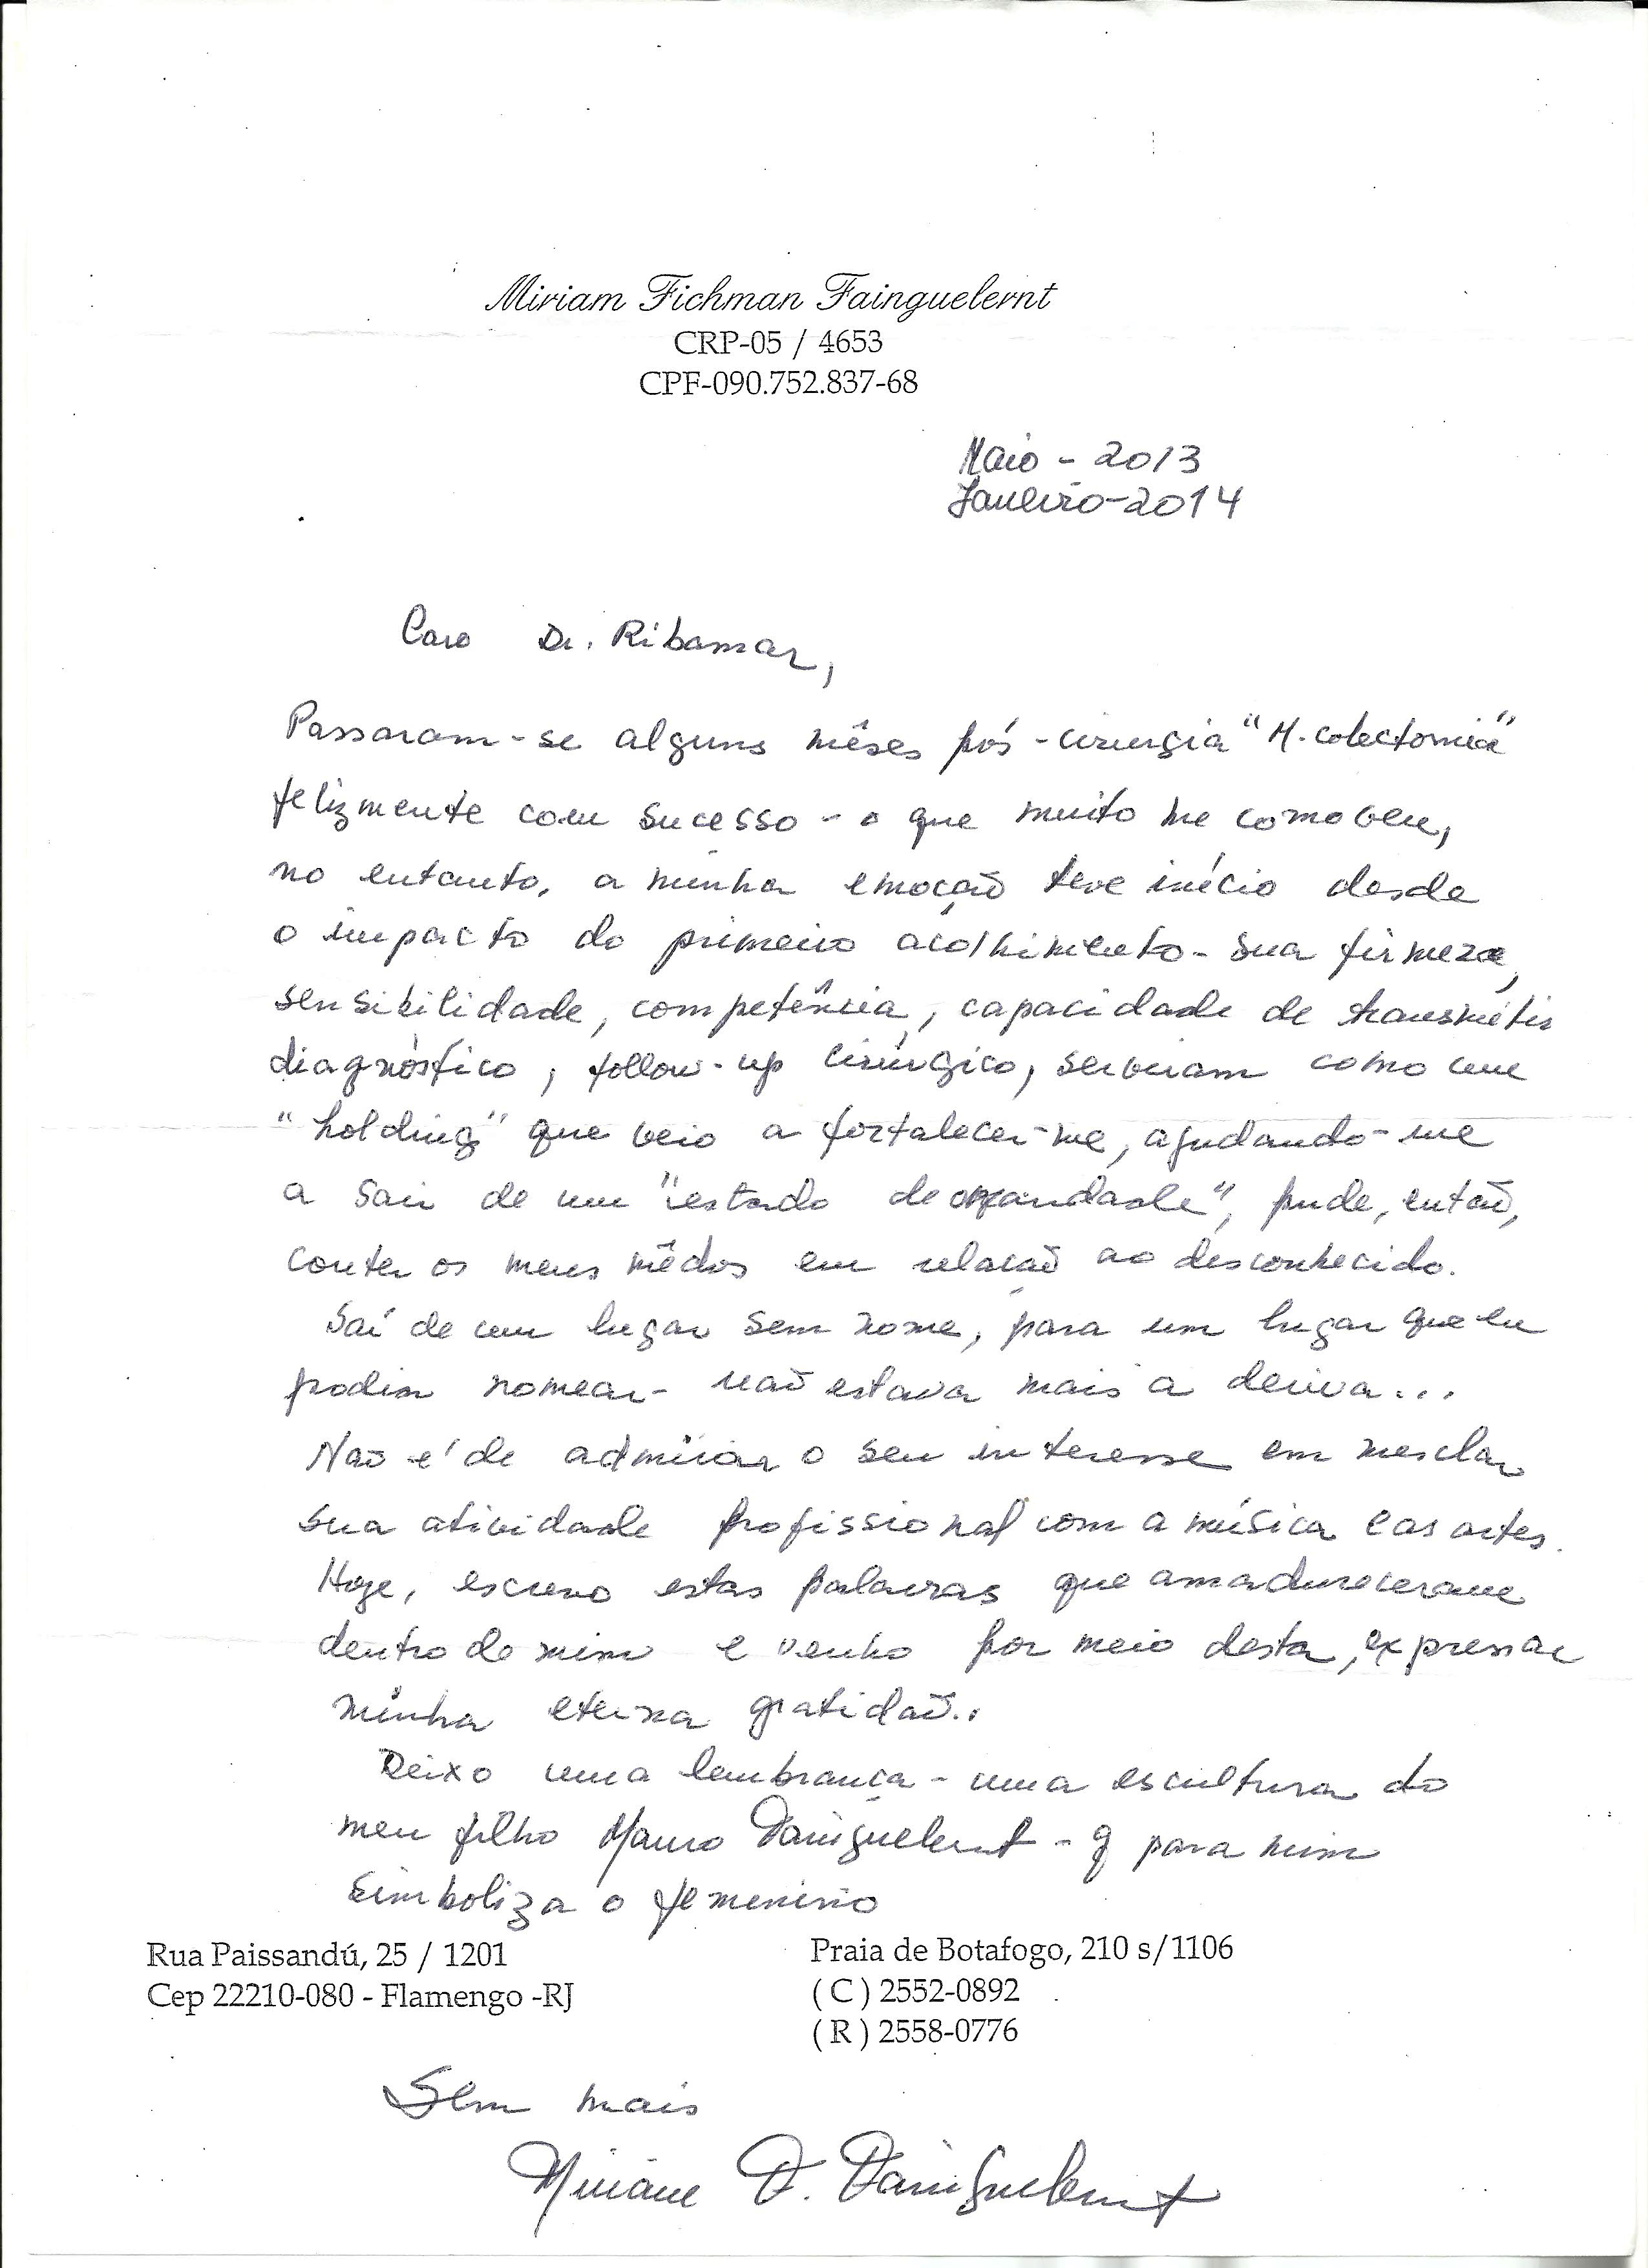 Miriam Fichman Fainguelernt
CRP-05 / 4653
CPF-090.752.837-68
Maio - 2013
Janeiro-2014
Caro Dr. Ribamar,
Passaram-se alguns mêses pós-cirurgia "M. colectomia"
felizmente com sucesso - o que muito me comoveu,
no entanto, a minha emoção teve início desde
o impacto do primeiro acolhimento - sua firmeza,
sensibilidade, competência, capacidade de transmitir
diagnóstico, follow-up cirúrgico, serviram como um
"holding" que veio a fortalecer-me, ajudando-me
a sair de um "estado de", pude, então,
conter os meus mêdos em relação ao desconhecido.
Saí de um lugar sem nome, para um lugar que eu
podia nomear - não estava mais a deriva...
Não é de admirar o seu interesse em mesclar
sua atividade profissional com a música e as artes.
Hoje, escrevo estas palavras que amadureceram
dentro de mim e venho por meio desta, expressar
minha eterna gratidão..
Deixo uma lembrança - uma escultura do
meu filho Mauro Fainguelernt - q para mim
simboliza o femenino
Rua Paissandú, 25 / 1201
Cep 22210-080 - Flamengo -RJ
Praia de Botafogo, 210 s/1106
( C ) 2552-0892
( R ) 2558-0776
Sem mais
Miriam F. Fainguelernt